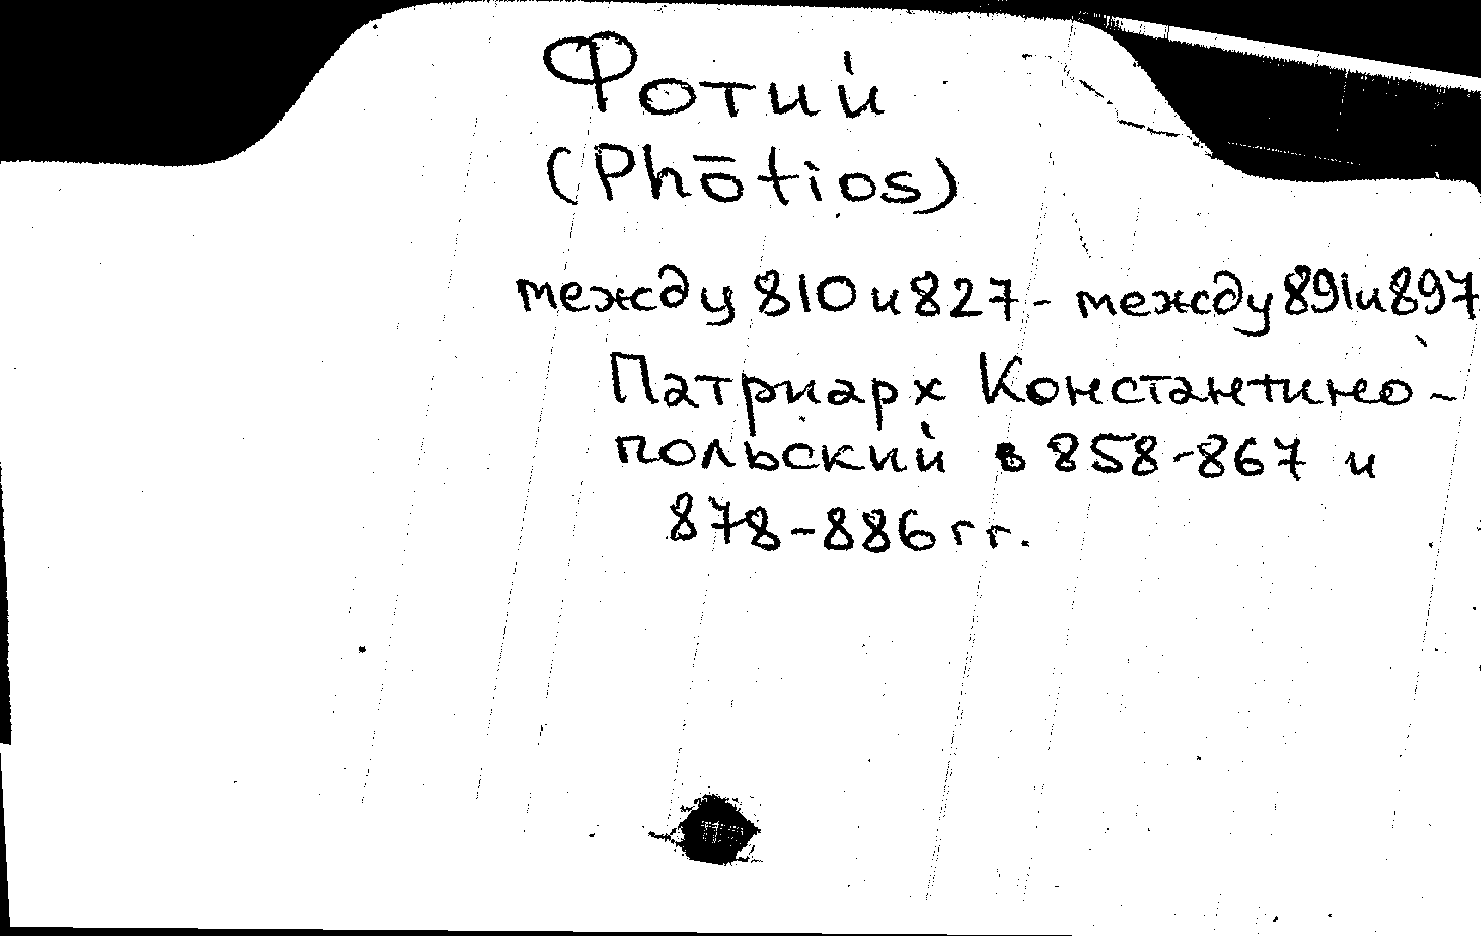 Фотий
(Phōtios)
между 810 и 827 - между 891 и 897
Патриарх Константино-
польский в 858-867 и
878-886 гг.